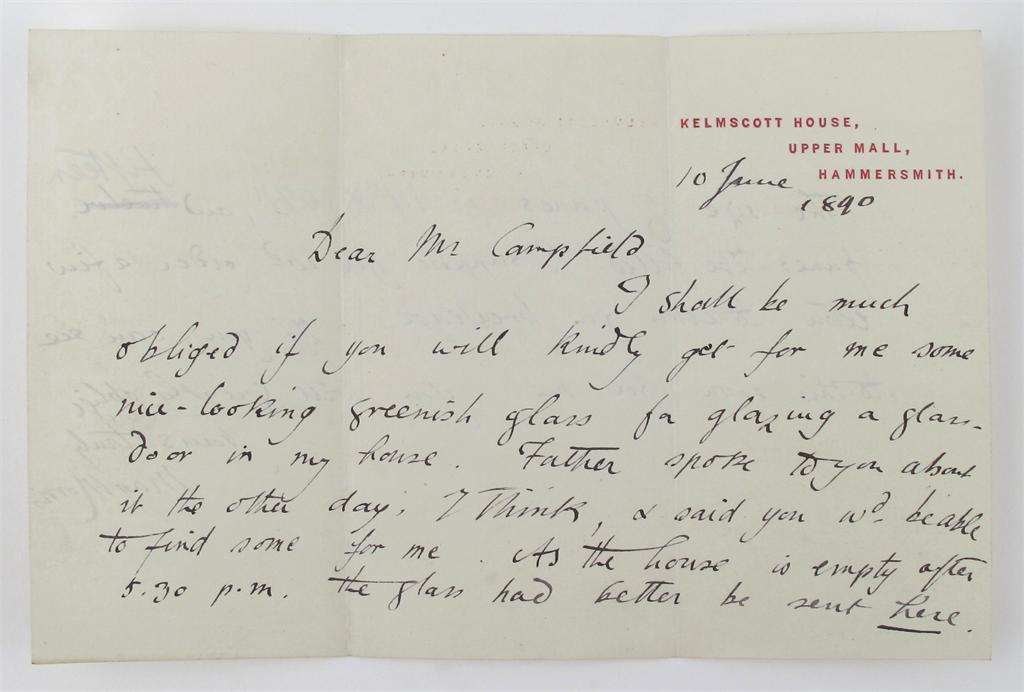 KELMSCOTT HOUSE,
UPPER MALL,
HAMMERSMITH.
10 June
1890
Dear Mr Campfield
I shall be much
obliged if you will kindly get for me some
nice-looking greenish glass for glazing a glass-
door in my house. Father spoke to you about
it the other day, I think, & said you wd. be able
to find some for me. As the house is empty after
5.30 p.m. the glass had better be sent here.